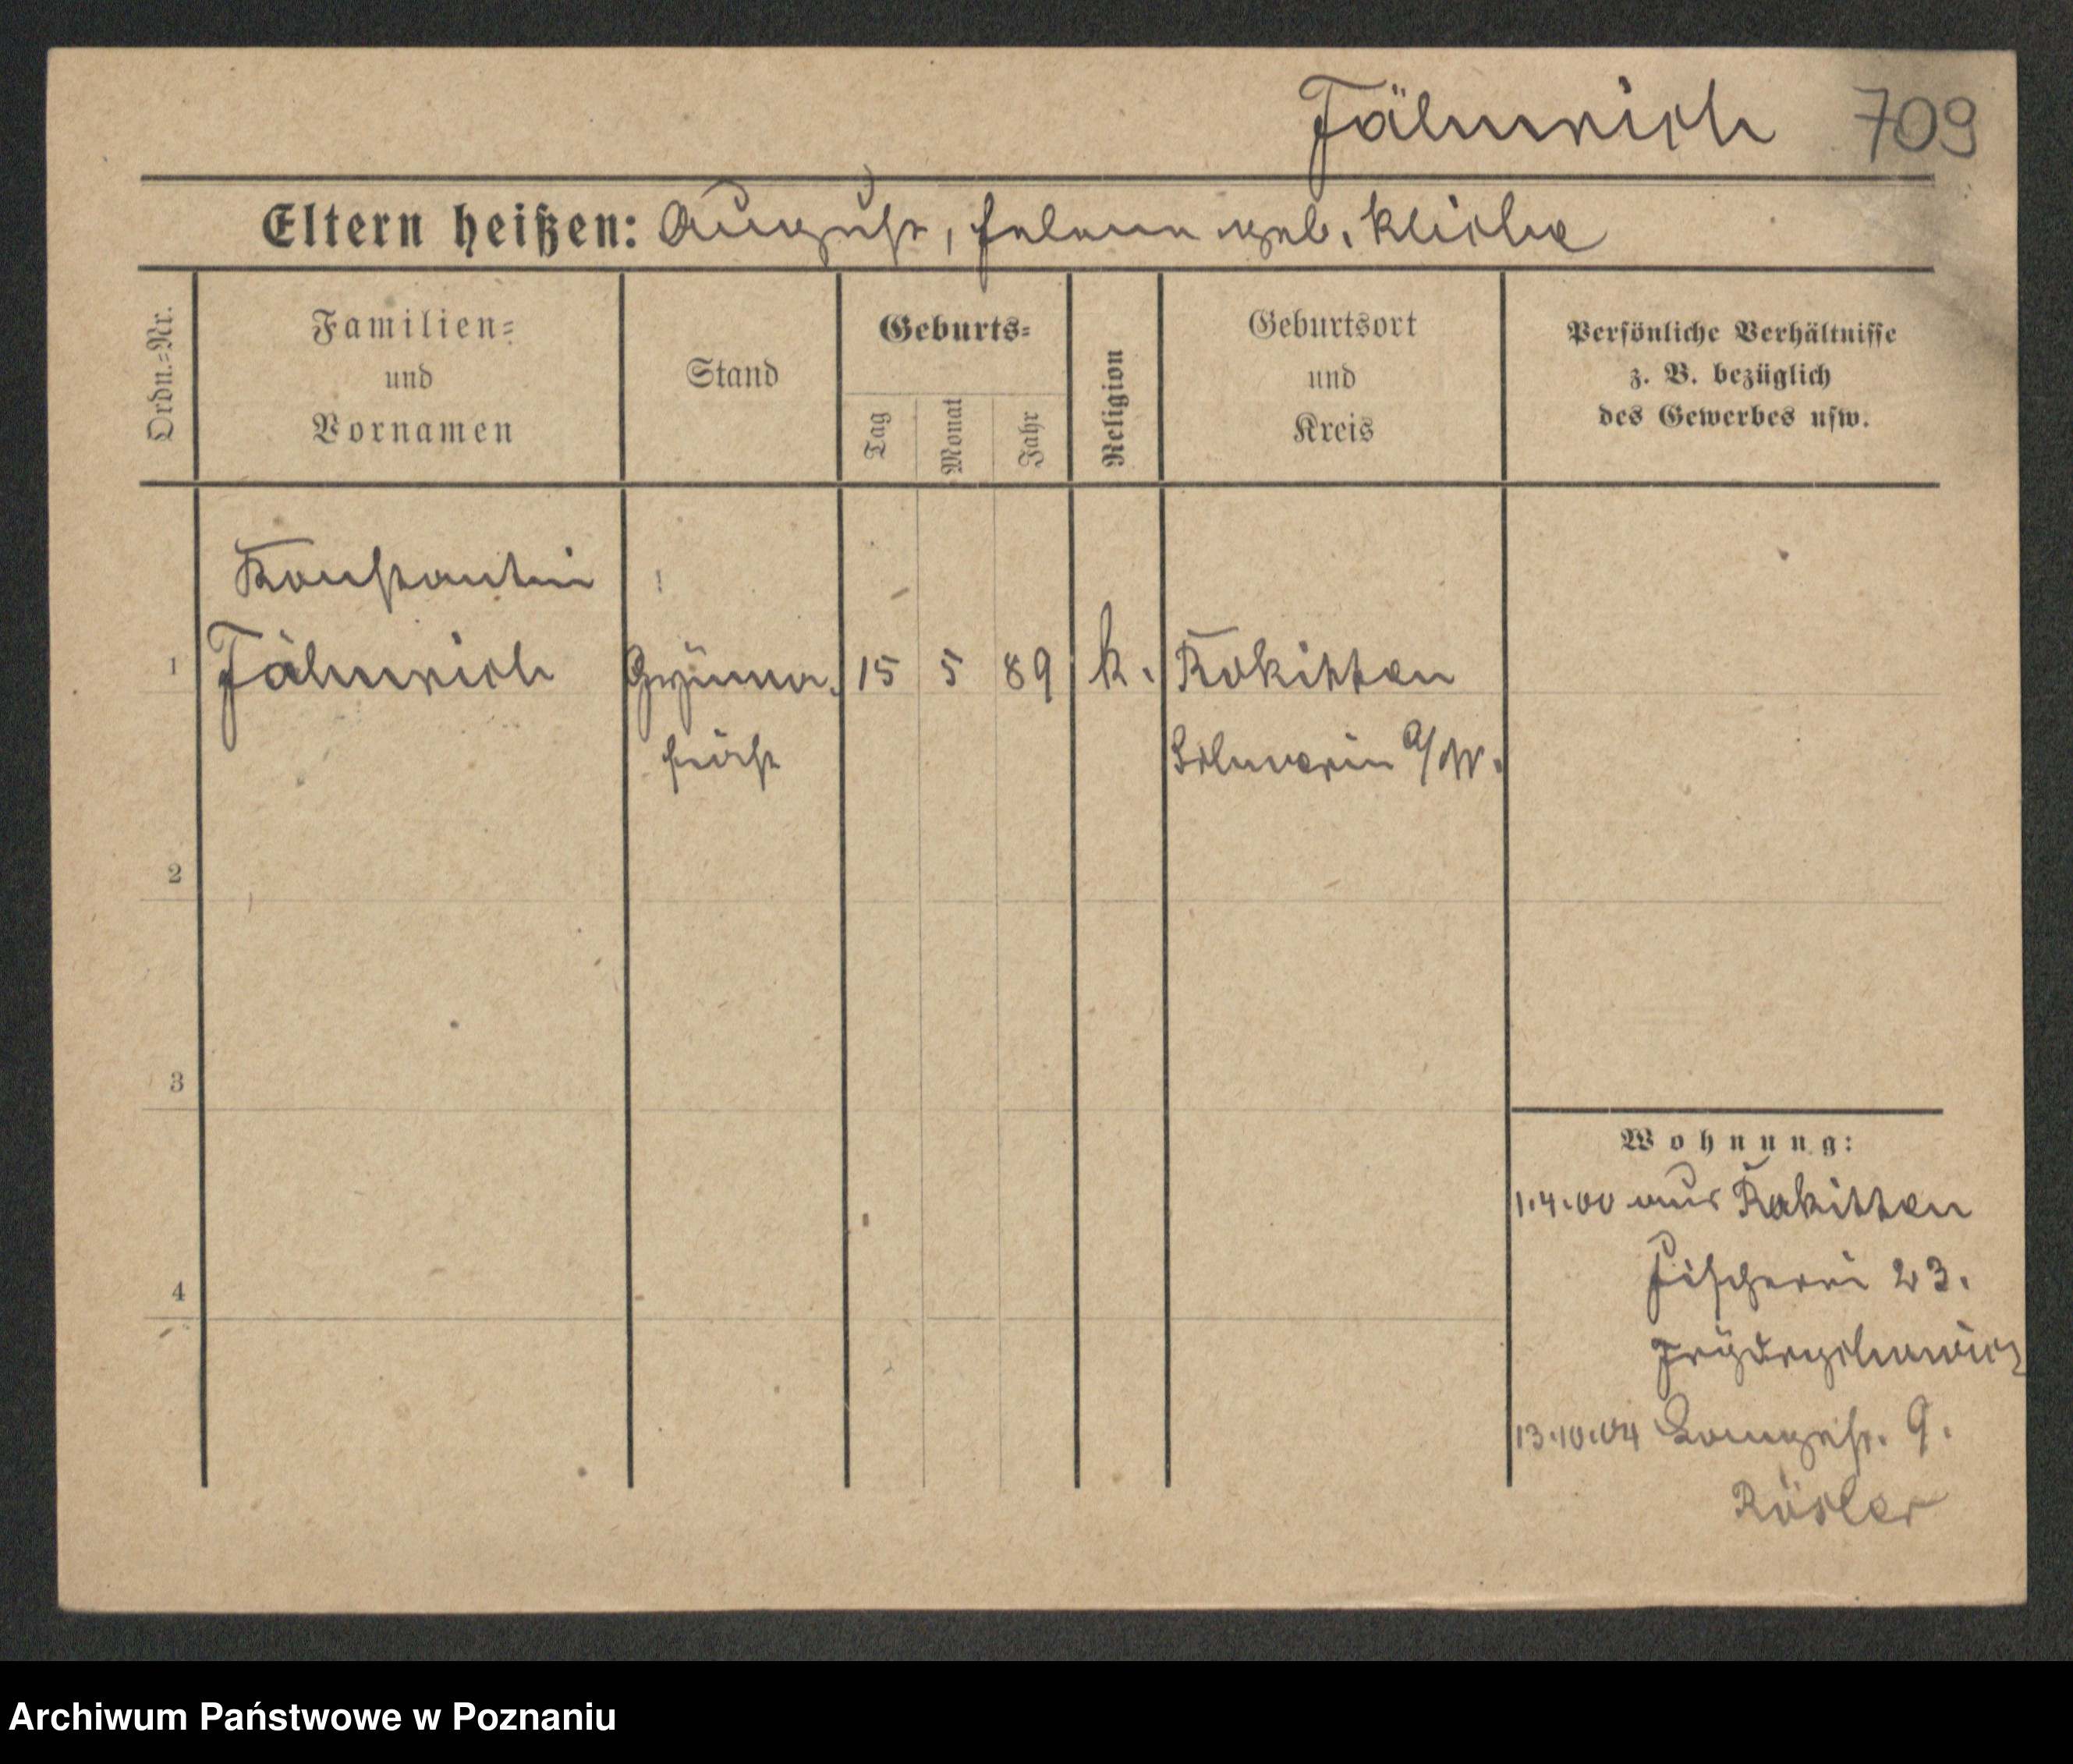 Fähnrich 709
Eltern heißen: August, Helene geb. Klische
Ordn.=Nr.
Familien=
und
Vornamen
Stand
Geburts=
Tag
Monat
Jahr
Religion
Geburtsort
und
Kreis
Persönliche Verhältnisse
z. B. bezüglich
des Gewerbes usw.
Konstantin
1 Fähnrich Gymna. 15 5 89 k. Rokitten
siast Schwerin a/W.
2
3
4
Wohnung:
1.4.00 aus Rokitten
Fischerei 23.
13.10.04 Langestr. 9.
Rösler
Archiwum Państwowe w Poznaniu